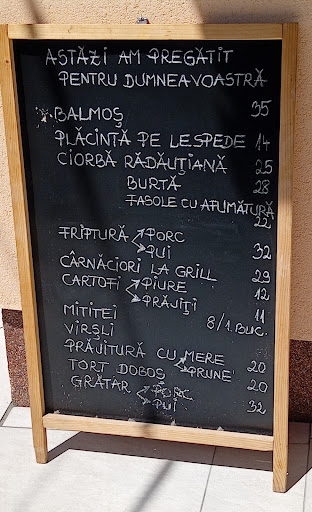 ASTĂZI AM PREGĂTIT
PENTRU DUMNEAVOASTRĂ
BALMOȘ 35
PLĂCINTĂ PE LESPEDE 14
CIORBĂ RĂDĂUȚIANĂ 25
BURTĂ 28
FASOLE CU AFUMĂTURĂ
22
FRIPTURĂ PORC
PUI 32
CÂRNĂCIORI LA GRILL 29
CARTOFI PIURE 12
PRĂJIȚI
MITITEI 11
VIRȘLI 8/1.BUC.
PRĂJITURĂ CU MERE 20
PRUNE
TORT DOBOȘ 20
GRĂTAR PORC
PUI 32